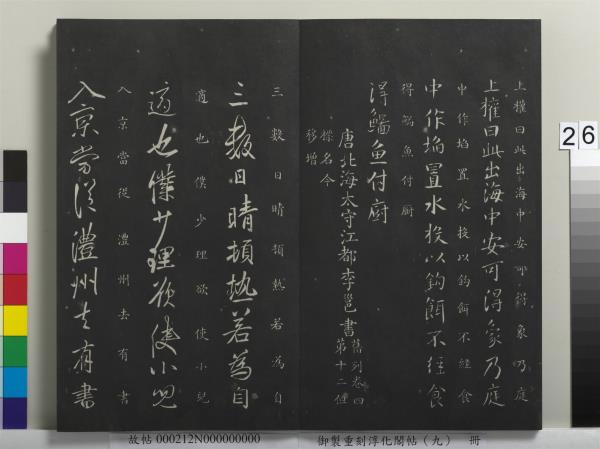 上權曰此出海中安可得象乃庭
上權曰此出海中安可得象乃庭
中作埳置水投以鈎餌不經食
中作埳置水投以鈎餌不經食
得鯔魚付廚
得鯔魚付廚
唐北海太守江都李邕書
舊列卷四
第十二種
標名今
移增
三數日晴頓熱若為自
三數日晴頓熱若為自
適也僕少理欲使小兒
適也僕少理欲使小兒
入京當從澧州去有書
入京當從澧州去有書
26
故帖 000212N000000000
御製重刻淳化閣帖（九） 冊